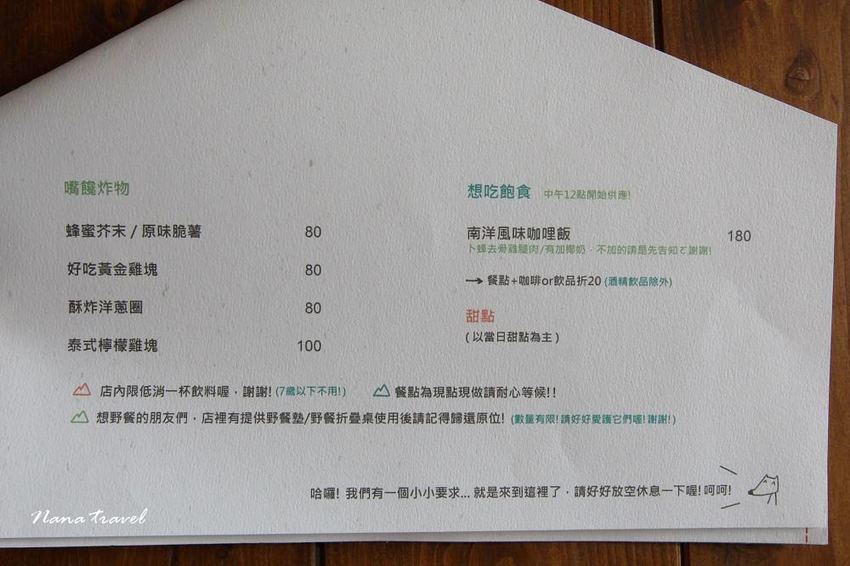 嘴饞炸物
蜂蜜芥末 / 原味脆薯 80
好吃黃金雞塊 80
酥炸洋蔥圈 80
泰式檸檬雞塊 100
想吃飽食 中午12點開始供應!
南洋風味咖哩飯 180
卜蜂去骨雞腿肉/有加椰奶,不加的請是先告知ㄛ謝謝!
→ 餐點+咖啡or飲品折20 (酒精飲品除外)
甜點
( 以當日甜點為主 )
店內限低消一杯飲料喔,謝謝! (7歲以下不用! )
餐點為現點現做請耐心等候! !
想野餐的朋友們,店裡有提供野餐墊/野餐折疊桌使用後請記得歸還原位! (數量有限! 請好好愛護它們喔! 謝謝! )
哈囉! 我們有一個小小要求... 就是來到這裡了,請好好放空休息一下喔! 呵呵!
Nana travel